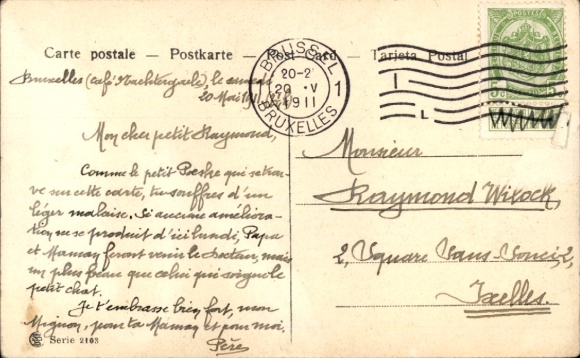 Carte postale — Postkarte — Post Card — Tarjeta Postal
BRUSSEL
1
20-2
20 · V
1911
BRUXELLES
L
Bruxelles (café Nachtergaele), le samedi
20 Mai 1911
Mon cher petit Raymond,
Comme le petit que se trou-
ve sur cette carte, tu souffres d'un
léger malaise. Si aucune améliora-
tion ne se produit d'ici lundi, Papa
et Maman feront venir le docteur, mais
un plus beau que celui qui soigne le
petit chat.
Je t'embrasse bien fort, mon
Mignon, pour ta Maman et pour moi.
Père
Monsieur
Raymond Wilock,
2, Square Sans-Souci, 2,
Ixelles.
Serie 2103